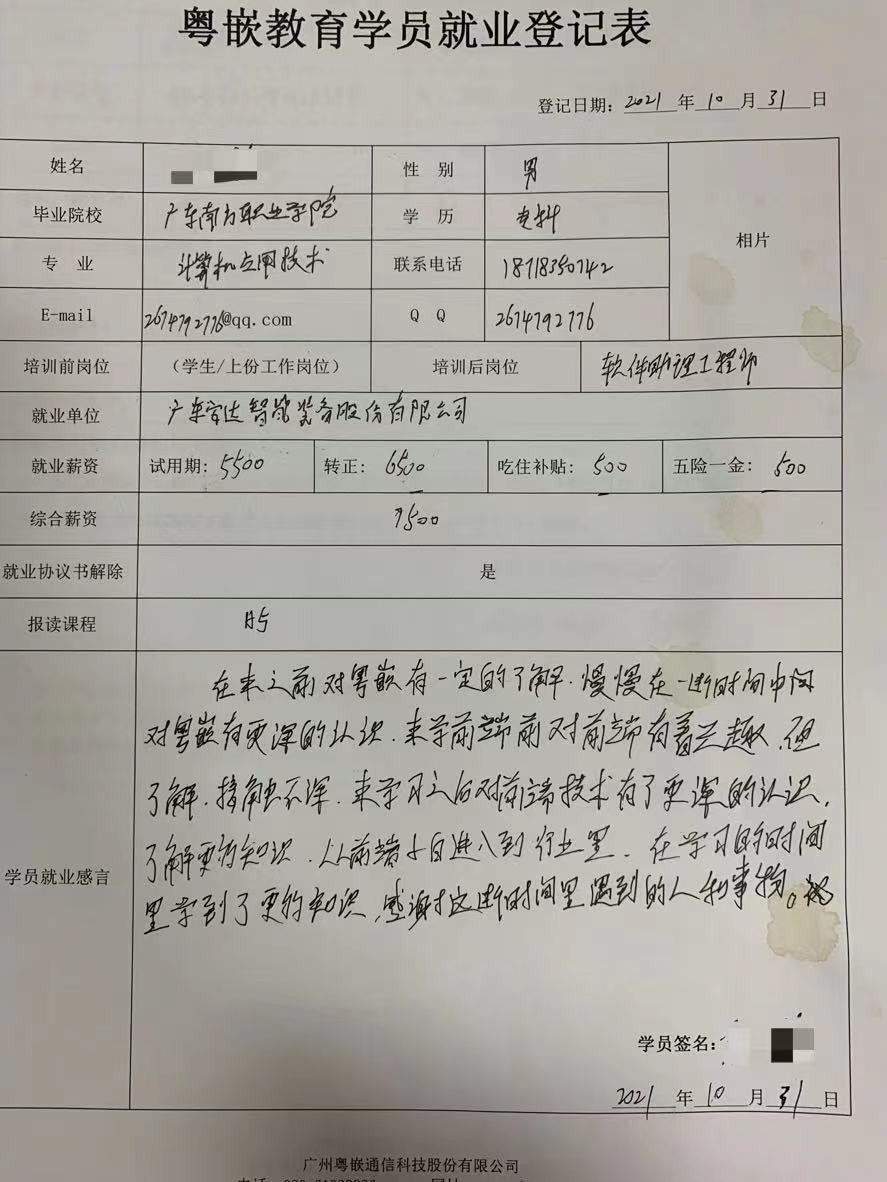 粤嵌教育学员就业登记表
登记日期: 2021 年 10 月 31 日
姓名 性 别 男
毕业院校 广东南方职业学院 学 历 专科 相片
专 业 计算机应用技术 联系电话 18718350742
E-mail 2674792776@qq.com Q Q 2674792776
培训前岗位 (学生/上份工作岗位) 培训后岗位 软件助理工程师
就业单位 广东宏达智能装备股份有限公司
就业薪资 试用期: 5500 转正: 6500 吃住补贴: 500 五险一金: 500
综合薪资 7500
就业协议书解除 是
报读课程 H5
在来之前对粤嵌有一定的了解.慢慢在一断时间中间
对粤嵌有更深的认识.来学前端前对前端有着兴趣.但
了解.接触不深.来学习之后对前端技术有了更深的认识,
了解更多知识.从前端小白进入到行业里.在学习的时间
学员就业感言
里学到了更多知识,感谢这断时间里遇到的人和事物。
学员签名:
2021 年 10 月 31 日
广州粤嵌通信科技股份有限公司